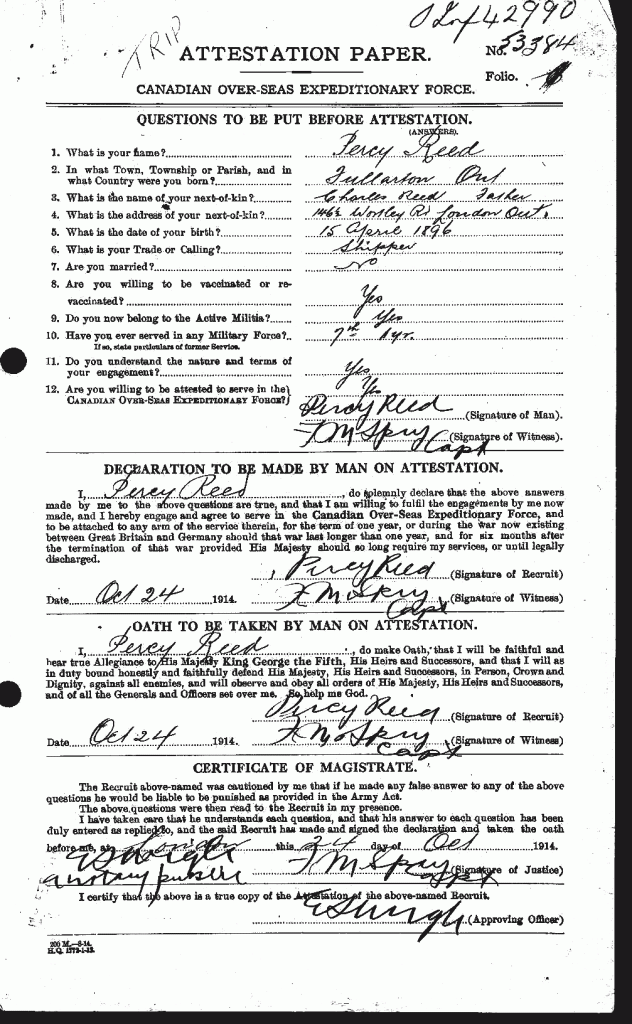 42990
TRIP
ATTESTATION PAPER.
No. 53384
Folio.
CANADIAN OVER-SEAS EXPEDITIONARY FORCE.
QUESTIONS TO BE PUT BEFORE ATTESTATION.
(ANSWERS).
1. What is your name? Percy Reed
2. In what Town, Township or Parish, and in
what Country were you born? Fullarton Ont
3. What is the name of your next-of-kin? Charles Reed Father
4. What is the address of your next-of-kin? 146½ Wortley Rd London Ont.
5. What is the date of your birth? 15 April 1896
6. What is your Trade or Calling? Shipper
7. Are you married? No
8. Are you willing to be vaccinated or re-
vaccinated? Yes
9. Do you now belong to the Active Militia? Yes
10. Have you ever served in any Military Force? 7th 1 yr.
If so, state particulars of former Service.
11. Do you understand the nature and terms of
your engagement? Yes
12. Are you willing to be attested to serve in the Yes
CANADIAN OVER-SEAS EXPEDITIONARY FORCE?
Percy Reed (Signature of Man).
F M Spry Capt (Signature of Witness).
DECLARATION TO BE MADE BY MAN ON ATTESTATION.
I, Percy Reed, do solemnly declare that the above answers
made by me to the above questions are true, and that I am willing to fulfil the engagements by me now
made, and I hereby engage and agree to serve in the Canadian Over-Seas Expeditionary Force, and
to be attached to any arm of the service therein, for the term of one year, or during the war now existing
between Great Britain and Germany should that war last longer than one year, and for six months after
the termination of that war provided His Majesty should so long require my services, or until legally
discharged.
Percy Reed (Signature of Recruit)
Date Oct 24 1914. F M Spry Capt (Signature of Witness)
OATH TO BE TAKEN BY MAN ON ATTESTATION.
I, Percy Reed, do make Oath, that I will be faithful and
bear true Allegiance to His Majesty King George the Fifth, His Heirs and Successors, and that I will as
in duty bound honestly and faithfully defend His Majesty, His Heirs and Successors, in Person, Crown and
Dignity, against all enemies, and will observe and obey all orders of His Majesty, His Heirs and Successors,
and of all the Generals and Officers set over me. So help me God.
Percy Reed (Signature of Recruit)
Date Oct 24 1914. F M Spry Capt (Signature of Witness)
CERTIFICATE OF MAGISTRATE.
The Recruit above-named was cautioned by me that if he made any false answer to any of the above
questions he would be liable to be punished as provided in the Army Act.
The above questions were then read to the Recruit in my presence.
I have taken care that he understands each question, and that his answer to each question has been
duly entered as replied to, and the said Recruit has made and signed the declaration and taken the oath
before me, at London this 24 day of Oct 1914.
F M Spry Capt (Signature of Justice)
a notary public
I certify that the above is a true copy of the Attestation of the above-named Recruit.
(Approving Officer)
200 M.—8-14.
H.Q. 1772-1-13.